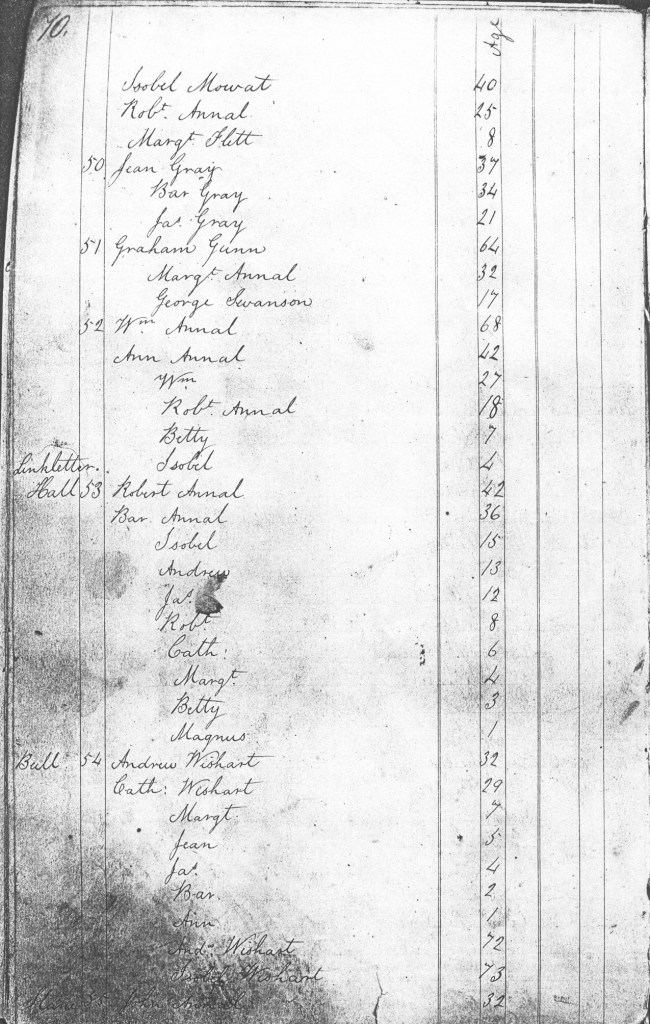 70.
Age
Isobel Mowat 40
Robt. Annal 25
Margt. Flett 8
50 Jean Gray 37
Bar Gray 34
Jas. Gray 21
51 Graham Gunn 64
Margt. Annal 32
George Swanson 17
52 Wm. Annal 68
Ann Annal 42
Wm 27
Robt. Annal 18
Betty 7
Linkletter. Isobel 4
Hall 53 Robert Annal 42
Bar. Annal 36
Isobel 15
Andrew 13
Jas. 12
Robt. 8
Cath: 6
Margt. 4
Betty 3
Magnus 1
54 Andrew Wishart 32
Cath: Wishart 29
Margt. 7
Jean 5
Jas. 4
Bar. 2
Ann 1
Andw. Wishart 72
Isobel Wishart 73
55 John 32